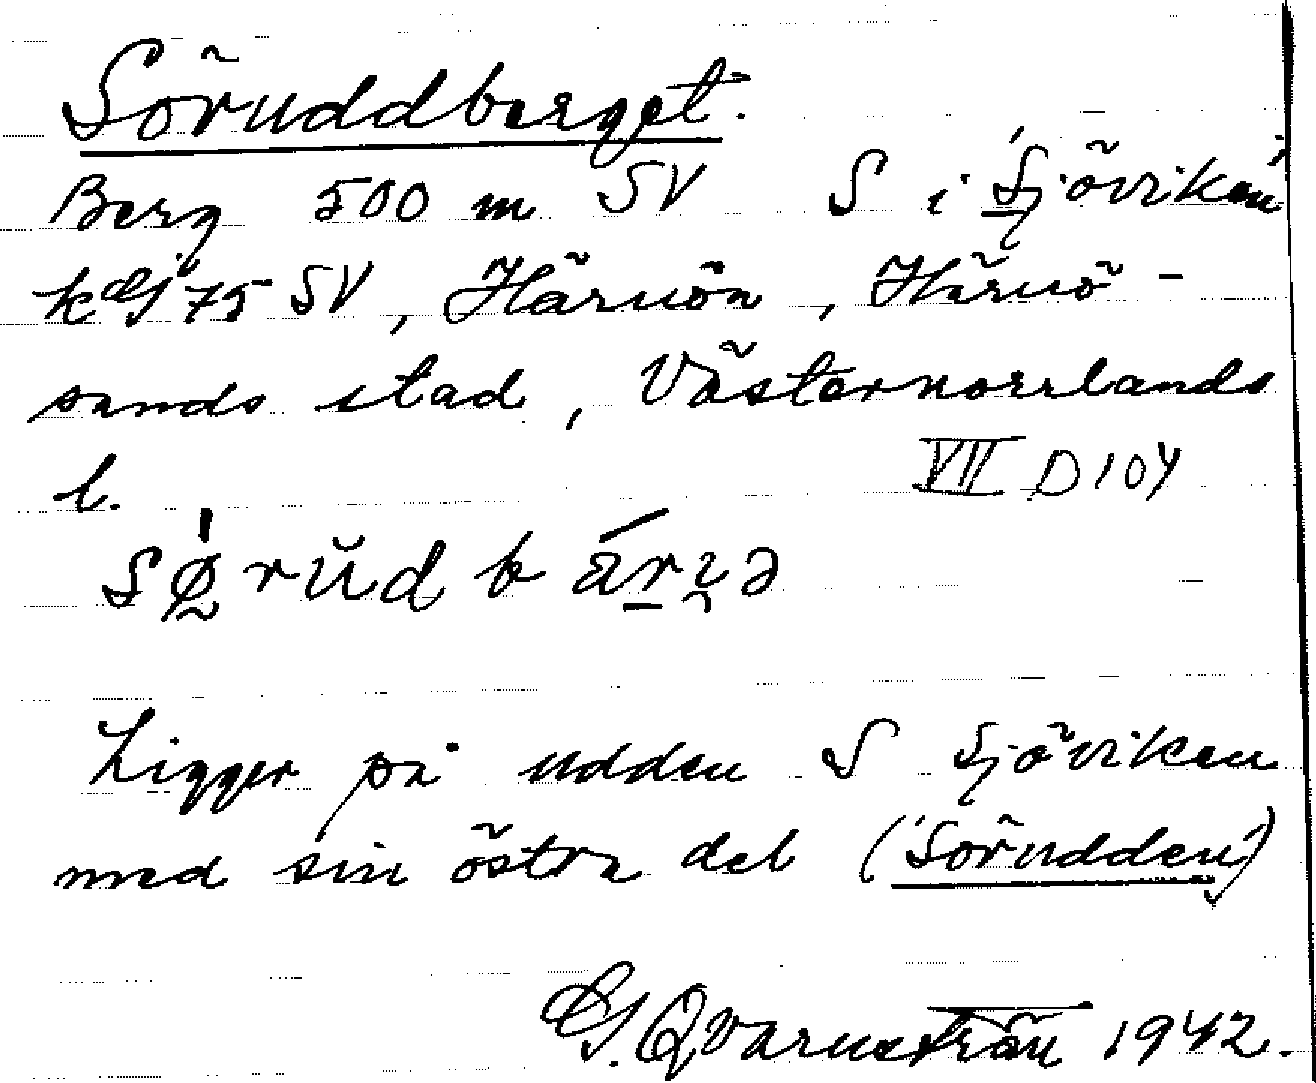 Söruddberget.
Berg 500 m SV S i 'Sjöviken'
75 SV, Härnön, Härnö-
sands stad, Västernorrlands
l. VII D 104
Ligger på udden S Sjöviken
med sin östra del ('Sörudden')
G. Qvarnström 1942.